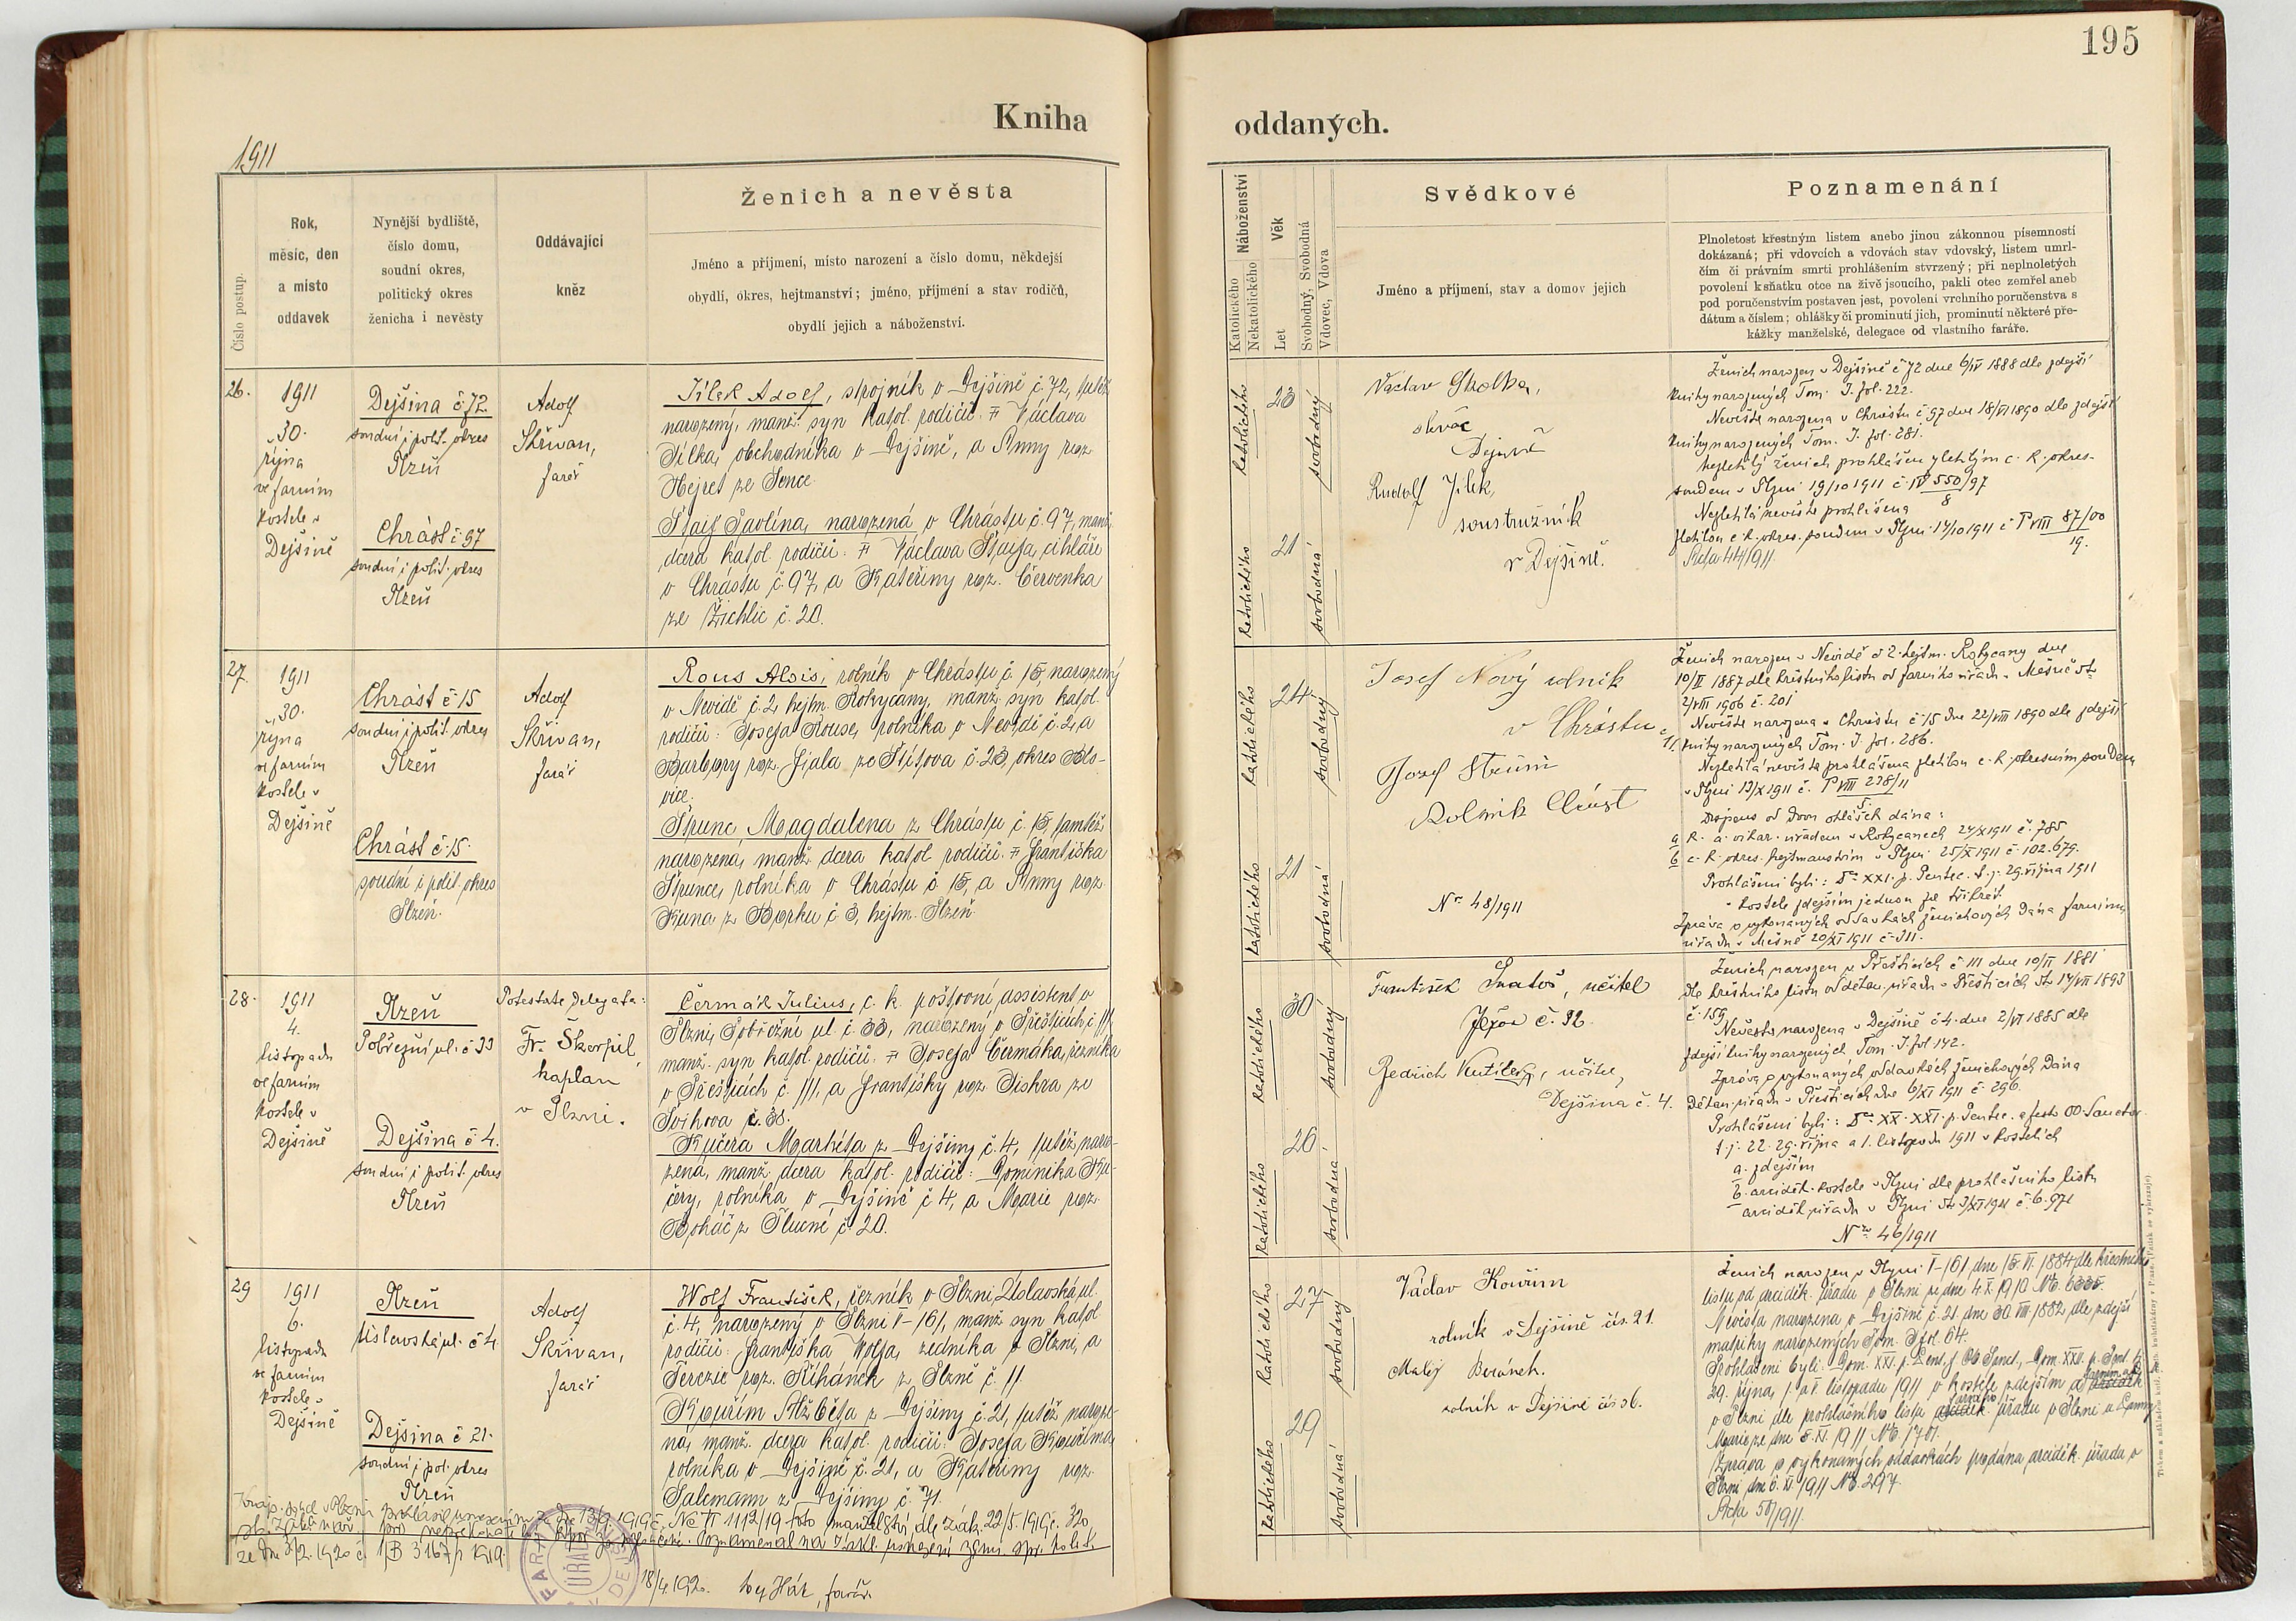 195
Kniha oddaných.
1911
Číslo postup.
Rok,
měsíc, den
a místo
oddavek
Nynější bydliště,
číslo domu,
soudní okres,
politický okres
ženicha i nevěsty
Oddávající
kněz
Ženich a nevěsta
Jméno a příjmení, místo narození a číslo domu, někdejší
obydlí, okres, hejtmanství; jméno, příjmení a stav rodičů,
obydlí jejich a náboženství.
Náboženství
Katolického
Nekatolického
Věk
Let
Svobodný, Svobodná
Vdovec, Vdova
Svědkové
Jméno a příjmení, stav a domov jejich
Poznamenání
Plnoletost křestným listem anebo jinou zákonnou písemností
dokázaná; při vdovcích a vdovách stav vdovský, listem umrl-
čím či právním smrti prohlášením stvrzený; při neplnoletých
povolení k sňatku otce na živě jsoucího, pakli otec zemřel aneb
pod poručenstvím postaven jest, povolení vrchního poručenstva s
dátum a číslem; ohlášky či prominutí jich, prominutí některé pře-
kážky manželské, delegace od vlastního faráře.
26.
1911
30.
října
ve farním
kostele v
Dejšině
Dejšina č. 72
soudní i polit. okres
Plzeň
Chrást č. 97
soudní i polit. okres
Plzeň
Adolf
Skřivan,
farář
Jílek Adolf, strojník v Dejšině č. 72, tutéž
narozený, manž. syn katol. rodičů: † Václava
Jílka, obchodníka v Dejšině, a Anny roz.
Hejret ze Sence.
Štaif Pavlína, narozená v Chrástu č. 97, manž.
dcera katol. rodičů: † Václava Štaifa, cihláře
v Chrástu č. 97, a Kateřiny roz. Červenka
ze Žichlic č. 20.
katolického
23
svobodný
katolického
21
svobodná
Václav
Dejšině
Rudolf Jílek,
soustružník
v Dejšině.
Ženich narozen v Dejšině č. 72 dne 6/IV 1888 dle zdejší
knihy narozených Tom. I. fol. 222.
Nevěsta narozena v Chrástu č. 97 dne 18/VI 1890 dle zdejší
knihy narozených Tom. I. fol. 281.
Nezletilý ženich prohlášen zletilým c. k. okres.
soudem v Plzni 19/10 1911 č. IV 550/97
8
Nezletilá nevěsta prohlášena
zletilou c. k. okres. soudem v Plzni 17/10 1911 č. P VIII 87/00
19.
Acta 44/1911.
27.
1911
30.
října
ve farním
kostele v
Dejšině
Chrást č. 15
soudní i polit. okres
Plzeň
Chrást č. 15.
soudní i polit. okres
Plzeň.
Adolf
Skřivan,
farář
Rous Alois, rolník v Chrástu č. 15, narozený
v Nevidě č. 2, hejtm. Rokycany, manž. syn katol.
rodičů: Josefa Rouse, rolníka v Nevidě č. 2, a
Barbory roz. Fiala ze Štítova č. 23, okres Blo-
vice.
Štrunc Magdalena z Chrástu č. 15, tamtéž
narozená, manž. dcera katol. rodičů: † Františka
Štrunce, rolníka v Chrástu č. 15, a Anny roz.
Kuna z Borku č. 3, hejtm. Plzeň.
katolického
24
svobodný
katolického
21
svobodná
Josef Nový rolník
v Chrástu
Jozef
Rolník Chrást
No 48/1911
Ženich narozen v Nevidě č. 2. hejtm. Rokycany dne
10/II 1887 dle křestního listu od farního úřadu v
2/VIII 1906 č. 201
Nevěsta narozena v Chrástu č. 15 dne 22/VIII 1890 dle zdejší
knihy narozených Tom. I. fol. 286.
Nezletilá nevěsta prohlášena zletilou c. k. okresním soudem
v Plzni 13/X 1911 č. P VIII 278/11
5.
Dispens od dvou ohlášek dána:
a k. a. vikar. úřadem v Rokycanech 24/X 1911 č. 785
b c. k. okres. hejtmanstvím v Plzni 25/X 1911 č. 102.679.
Prohlášeni byli: Dca XXI. p. Pentec. t. j. 29. října 1911
v kostele zdejším jednou za třikrát
Zpráva o vykonaných oddavkách ženichových dána farnímu
úřadu v 20/XI 1911 č. 311.
28.
1911
4.
listopadu
ve farním
kostele v
Dejšině
Plzeň
Pobřežní ul. č. 33
Dejšina č. 4.
soudní i polit. okres
Plzeň
Potestate delegata:
Fr. Škorpil,
kaplan
v Plzni.
Čermák Julius, c. k. poštovní assistent v
Plzni, Pobřežní ul. č. 33, narozený v Přešticích č. 111,
manž. syn katol. rodičů: † Josefa Čermáka, řezníka
v Přešticích č. 111, a Františky roz. Jiskra ze
Švihova č. 38.
Kučera Markéta z Dejšiny č. 4, tutéž naro-
zená, manž. dcera katol. rodičů: Dominika Ku-
čery, rolníka v Dejšině č. 4, a Marie roz.
Boháč z Tlucné č. 20.
katolického
30
svobodný
katolického
26
svobodná
František Svatoš, učitel
Ježov č. 32.
Bedřich, učitel,
Dejšina č. 4.
Ženich narozen v Přešticích č. 111 dne 10/II 1881
dle křestního listu od děkan. úřadu v Přešticích 14/VII 1893
č. 159
Nevěsta narozena v Dejšině č. 4. dne 2/VI 1885 dle
zdejší knihy narozených Tom. I. fol. 142.
Zpráva o vykonaných oddavkách ženichových dána
děkan. úřadu v Přešticích dne 6/XI 1911 č. 296.
Prohlášeni byli: Dca XX. XXI. p. Pentec. a festo OO. Sanctor.
t. j. 22. 29. října a 1. listopadu 1911 v kostelích
a. zdejším
b. arciděk. kostele v Plzni dle prohlášního listu
arciděk. úřadu v Plzni /XI 1911 č. 6.971
No 46/1911
29
1911
6.
listopadu
ve farním
kostele v
Dejšině
Plzeň
Úslavská ul. č. 4
Dejšina č. 21.
soudní i pol. okres
Plzeň
Adolf
Skřivan,
farář
Wolf František, řezník v Plzni, Úslavská ul.
č. 4, narozený v Plzni V-161, manž. syn katol.
rodičů: Františka Wolfa, zedníka v Plzni, a
Terezie roz. Řihánek z Plzně č. 11.
Kouřím Alžběta z Dejšiny č. 21, tutéž naroze-
ná, manž. dcera katol. rodičů: Josefa Kouříma,
rolníka v Dejšině č. 21, a Kateřiny roz.
Salcmann z Dejšiny č. 71.
katolického
27
svobodný
katolického
29
svobodná
Václav Kouřim
rolník v Dejšině čís. 21.
Matěj Beránek.
rolník v Dejšině čís 36.
Ženich narozen v Plzni V-161 dne 15. VI. 1884 dle křestního
listu od arciděk. úřadu v Plzni ze dne 4. X. 1910 No. 6335.
Nevěsta narozena v Dejšině č. 21 dne 30. VIII. 1882 dle zdejší
matriky narozených Tom. I fol. 64.
Prohlášeni byli: Dom. XXI. p. Pent., f. OO. Sanct., Dom. XXII. p. Pent. t.j.
29. října, 1. a 5. listopadu 1911 v kostele zdejším a
v Plzni dle prohlášního listu úřadu v Plzni u Panny
Marie ze dne 5. XI. 1911 No. 1701.
Zpráva o vykonaných oddavkách podána arciděk. úřadu v
Plzni dne 6. XI. 1911 No. 297.
Acta 50/1911.
Krajs. soud v Plzni prohlásil usnesením ze dne 13/9 1919 č. Nc II 1112/19 toto manželství dle zák. 22/5. 1919 č. 320
Poznamenal na zákl. nařízení zems. spr. polit.
ze dne 3/2. 1920 č. 1/B 3167/1 1919.
18/4. 1920. farář.
FARNÍ ÚŘAD